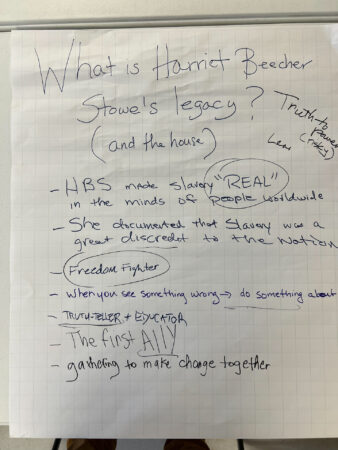 What is Harriet Beecher
Stowe's legacy?
(and the house)
Truth-to
power
(risky)
- HBS made slavery "REAL"
in the minds of people worldwide
- She documented that Slavery was a
great discredit to the Nation
- Freedom Fighter
- When you see something wrong → do something about
- TRUTH-TELLER + EDUCATOR
- The first Ally
- gathering to make change together